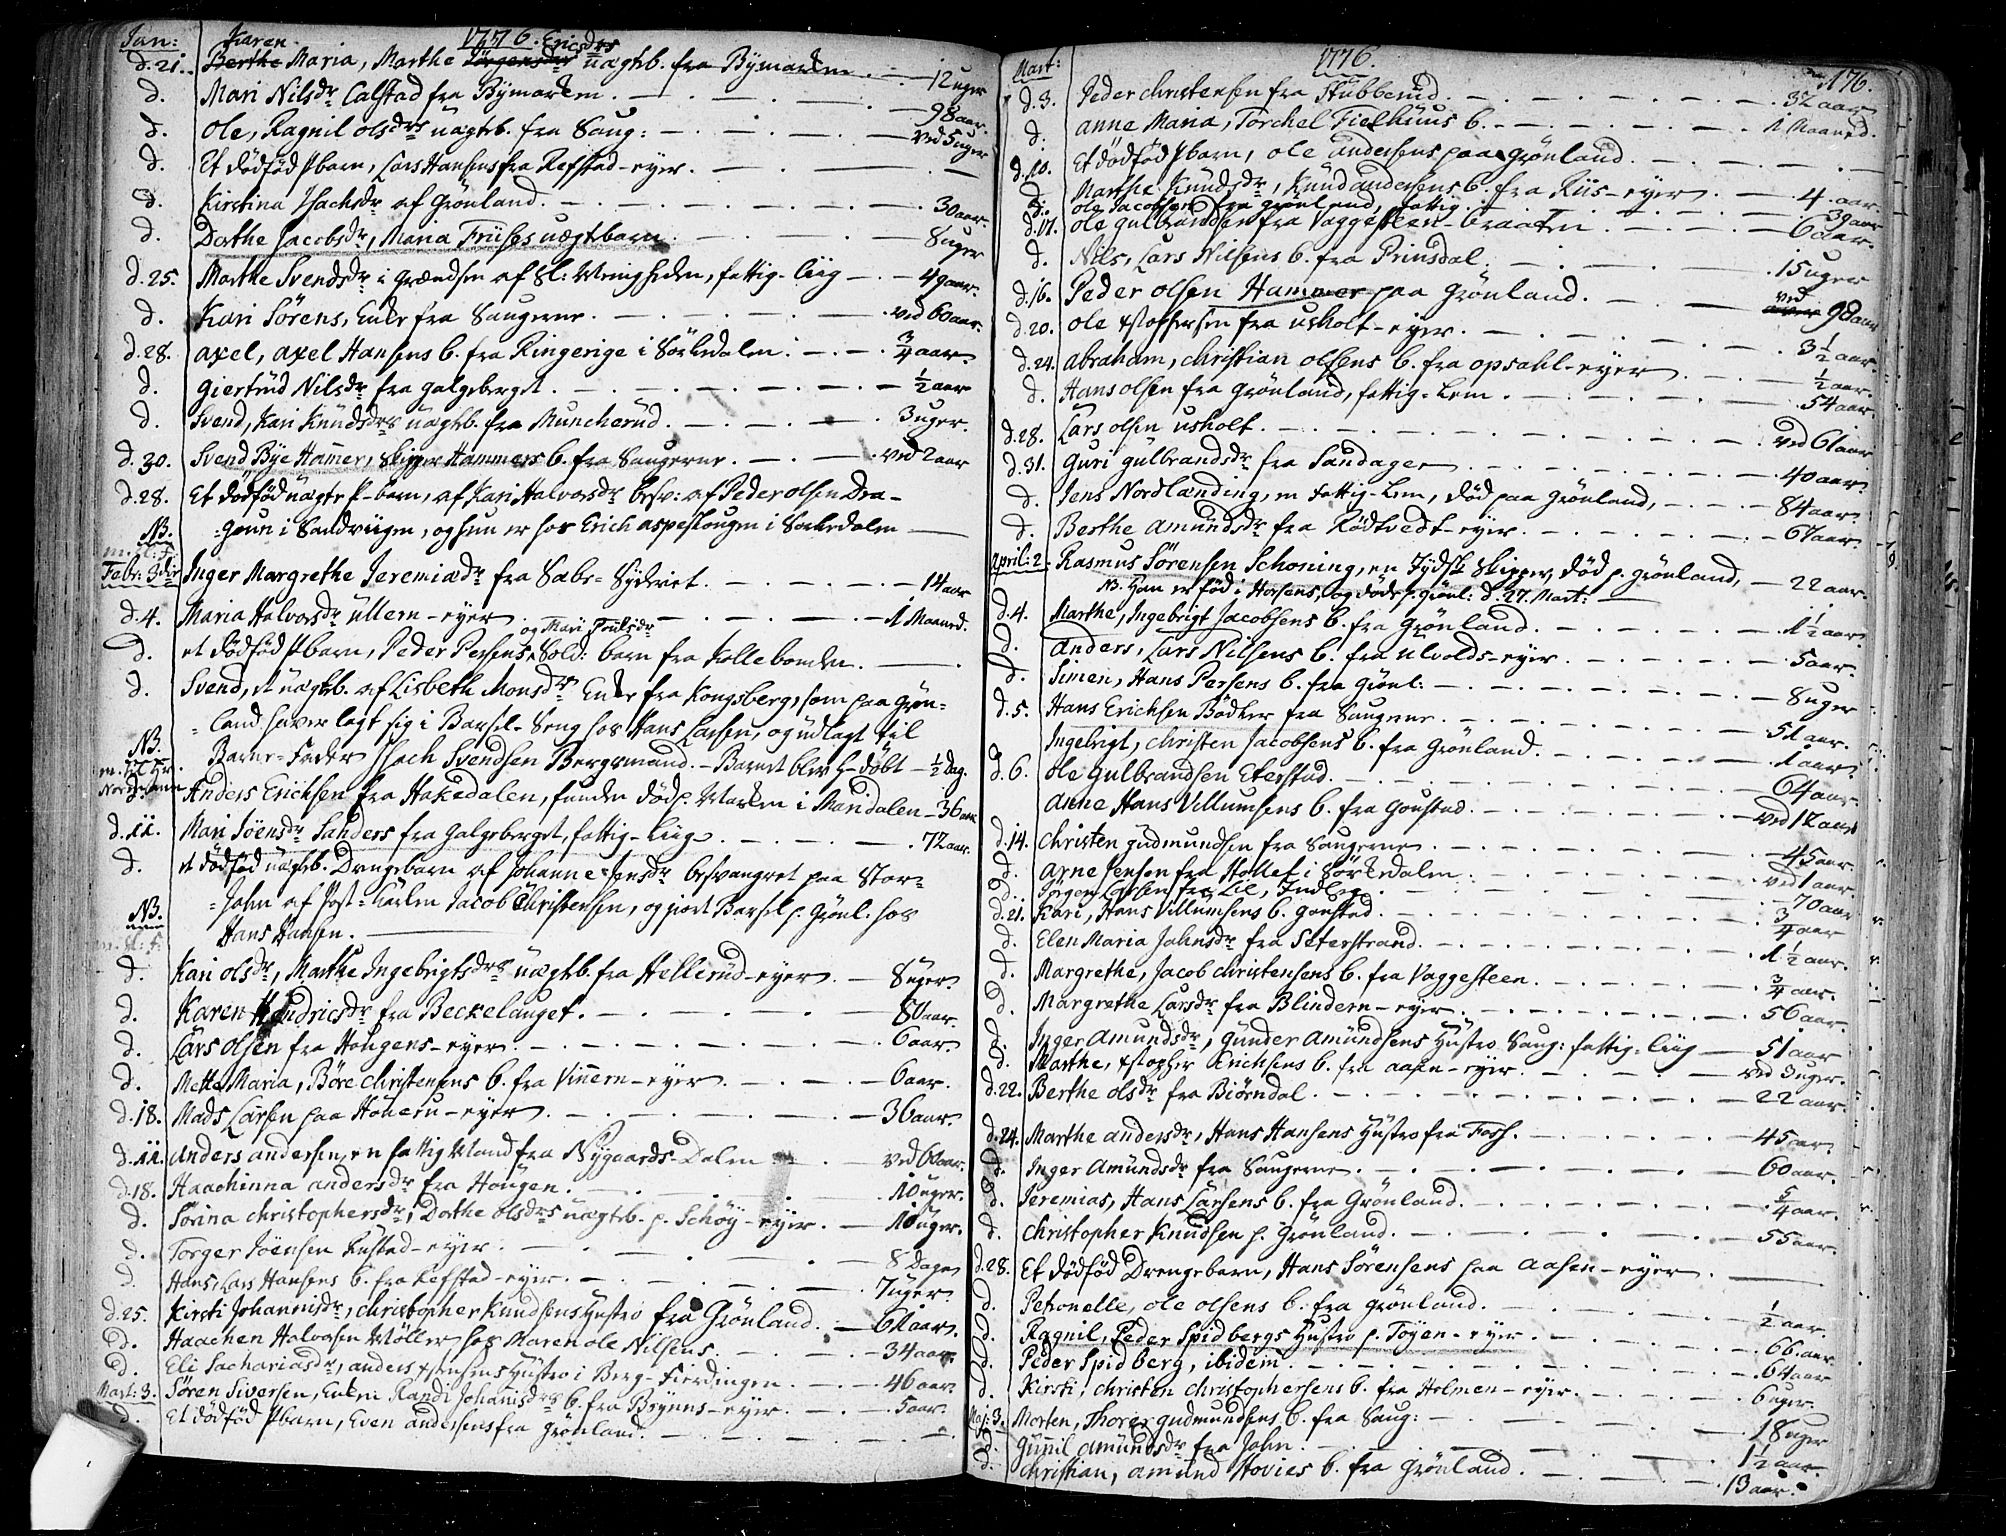 Jan: 1776.
d. 21. Karen Berthe Maria, Marthe Jörgensdr Ericsdrs uægtb. fra Bymarken. 12 uger
d. Mari Nilsdr Calstad fra Bymarken. 98 aar.
d. Ole, Ragnil olsdrs uægtb. fra Saug: ved 5 uger
d. Et dödföd Pbarn, Lars Hansens fra Refstad-eyer.
d. Kirstina Isachsdr af Grönland. 30 aar.
d. Dorthe Jacobsdr, Maria Friises uægtbarn 8 uger
d. 25. Marthe Svendsdr i Grændsen af Sl: Menigheden, fattig-liig 49 aar.
d. Kari Sörens, Enke fra Saugerne. ved 60 aar.
d. 28. Axel, Axel Hansens b. fra Ringerige i Sörkedalen. 3/4 aar.
d. Giertrud Nilsdr fra Galgeberget. 1/2 aar
d. Svend, Kari Knudsdrs uægtb. fra Muncherud. 3 uger.
d. 30. Svend Bye Hamer, Skipper Hammers b. fra Saugerne. ved 2 aar
d. 28. Et dödföd uægte P-barn, af Kari Halvorsdr besv: af Peder olsen Dra-
NB. =goun i Sandviigen, og hun er hos Erich aspeslougen i Sörkedalen
m. Sl: F:
Febr: 3die Inger Margrethe Jeremiædr fra Sæbe-Syderiet. 14 aar
d. 4. Maria Halvorsdr ullern-eyer. 1 Maaned.
d. et dödföd Pbarn, Peder Persens og Mari Poulsdr Sold: barn fra Kollebonden.
d. Svend, et uægtb. af Lisbeth Monsdr Enke fra Kongsberg, som paa Grön-
=land haver lagt sig i Barsel-Seng hos Hans Larsen, og udlagt til
NB. Barne-Fader Isach Svendsen Bergmand. Barnet blev h-döbt 1/2 Dag.
Anders Erichsen fra Hakedalen, funden död p. Marken i Maridalen 36 aar
d. 11. Mari Söensdr Sanders fra Galgeberget, fattig-liig 72 aar.
d. et dödföd uægtb. Drengebarn af Johanne Jensdr besvangret paa Stor-
NB. =John af Post-Karlen Jacob Christensen, og giort Barsel p. Grönl. hos
m. Sl: F: Hans Hansen.
d. Kari olsdr, Marthe Ingebrigtsdrs uægtb. fra Hellerud-eyer. 8 uger
d. Karen Hendricsdr fra Beckelauget. 80 aar.
d. Lars Olsen fra Hougens-eyer. 6 aar.
d. Mette Maria, Böre Christensens b. fra Vinnern-eyer. 6 aar.
d. 18. Mads Larsen paa Hounern-eyer. 36 aar.
d. 11. Anders andersen, en fattig Mand fra Nygaards-Dalen ved 60 aar.
d. 18. Haachinna andersdr fra Hougen. 10 uger.
d. Sörina Christophersdr, Dorthe olsdrs uægtb. p. Schöy-eyer. 10 uger.
d. Torger Jöensen Rustad-eyer. 8 Dage
d. Hans, Lars Hansens b. fra Refstad-eyer. 7 uger.
d. 25. Kirsti Johannisdr, Christopher Knudsens Hustro fra Grönland. 61 aar.
d. Haachen Halvorsen Möller hos Maren ole Nilsens. 34 aar
d. Eli Sachariasdr, anders Jensens Hustro i Berg-Fierdingen 46 aar.
Mart: 3. Sören Siversen, Enken Randi Johanisdrs b. fra Brynns-eyer. 5 aar.
d. Et dödföd Pbarn, Even andersens fra Grönland.
176.
Mart: 1776.
d. 3. Peder christensen fra Stubberud. 32 aar
d. Anne Maria, Torchel Fielhuus b. 1 Maaned.
d. 10. Et dödföd Pbarn, Ole andersens paa Grönland.
d. Marthe Knudsdr, Knud andersens b. fra Riis-eyer 4 aar.
d. ole Jacobsen fra Grönland, fattig 39 aar
d. 17. Ole gulbrandsen fra Vaggesteen-braaten 6 aar.
d. Nils, Lars Nilsens b. fra Prinsdal. 15 uger
d. 16. Peder olsen Hammer paa Grönland. ved 90 aar
d. 20. Ole xstophersen fra usholt-eyer. 3 1/2 aar
d. 24. Abraham, christian olsens b. fra opsahl-eyer 1/2 aar.
d. Hans olsen fra Grönland, fattig-Lem. 54 aar.
d. 28. Lars olsen usholt. ved 61 aar
d. 31. Guri Gulbrandsdr fra Sandager 40 aar.
d. Jens Nordlænding, en Fattig-Lem, död paa Grönland, 84 aar.
d. Berthe Amundsdr fra Rödtvedt-eyer. 67 aar.
April: 2. Rasmus Sörensen Schoning, en Jydsk Skipper, död p. Grönland, 22 aar.
NB. Han er föd i Horsens, og döde p. Grönl: d. 27. Mart:
d. 4. Marthe, Ingebrigt Jacobsens b. fra Grönland. 1 1/2 aar
d. Anders, Lars Nilsens b. fra ulvolds-eyer 5 aar.
d. Simen, Hans Persens b. fra Grönl: 8 uger
d. 5. Hans Erichsen Bödker fra Saugerne. 51 aar.
Ingebrigt, christen Jacobsens b. fra Grönland. 1 aar.
d. 6. Ole Gulbrandsen Eterstad. 64 aar.
Anne Hans Villumsens b. fra Goustad. ved 12 aar
d. 14. Christen gudmundsen fra Saugerne 45 aar.
d. Arne Jensen fra Hollet i Sörkedalen ved 1 aar.
d. Jörgen Larsen fra Lie, Indleg. 70 aar
d. 21. Kari, Hans Villumsens b. Goustad. 3/4 aar
d. Elen Maria Johnsdr fra Seterstrand. 1 1/2 aar.
d. Margrethe, Jacob christensens b. fra Vaggesteen. 3/4 aar.
d. Margrethe Larsdr fra Blindern-eyer. 56 aar.
d. Inger Amundsdr, Gunder Amundsens Hustro Saug: fattig-liig 51 aar
d. Marthe, xstopher Erichsens b. fra aasen-eyer. ved 3 uger.
d. 22. Berthe olsdr fra Biörndal. 22 aar.
d. 24. Marthe andersdr, Hans Hansens Hustro fra Foss. 45 aar.
d. Inger Amundsdr fra Saugerne. 60 aar.
d. Jeremias, Hans Larsens b. fra Grönland. 5/4 aar.
d. Christopher Knudsen p. Grönland. 55 aar.
d. 28. Et dödföd Drengebarn, Hans Sörensens paa aasen-eyer.
d. Petronelle, ole olsens b. fra Grönland. 1/2 aar.
d. Ragnil, Peder Spidbergs Hustro p. Toyen-eyer 66 aar.
d. Peder Spidberg, ibidem. 64 aar
d. Kirsti, christen christophersens b. fra Holmen-eyer. 6 uger.
Maj: 3. Morten, Thorer gudmundsens b. fra Saug: 18 uger
d. Gunnil Amundsdr fra John. 1 1/2 aar.
d. Christian, amund Hovies b. fra Grönland. 13 aar.